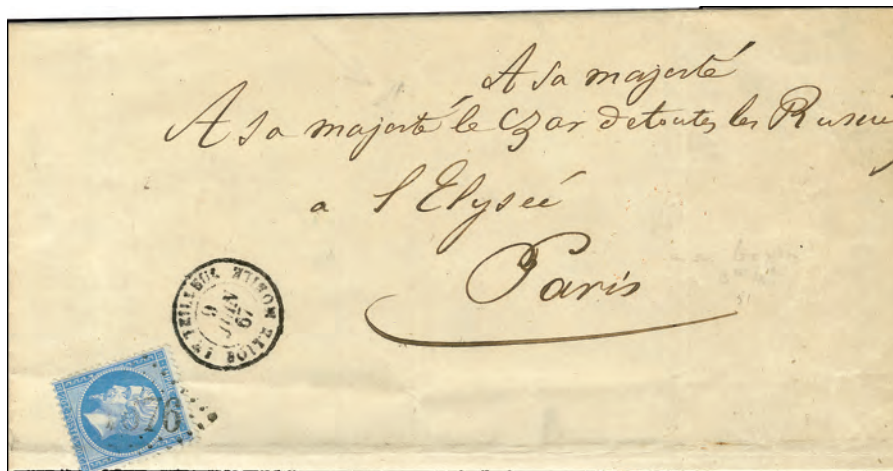 A sa majesté
A sa majesté le Czar de toutes les Russies
a l'Elyseé
Paris
BOITE MOBILE
9
JUIN
67